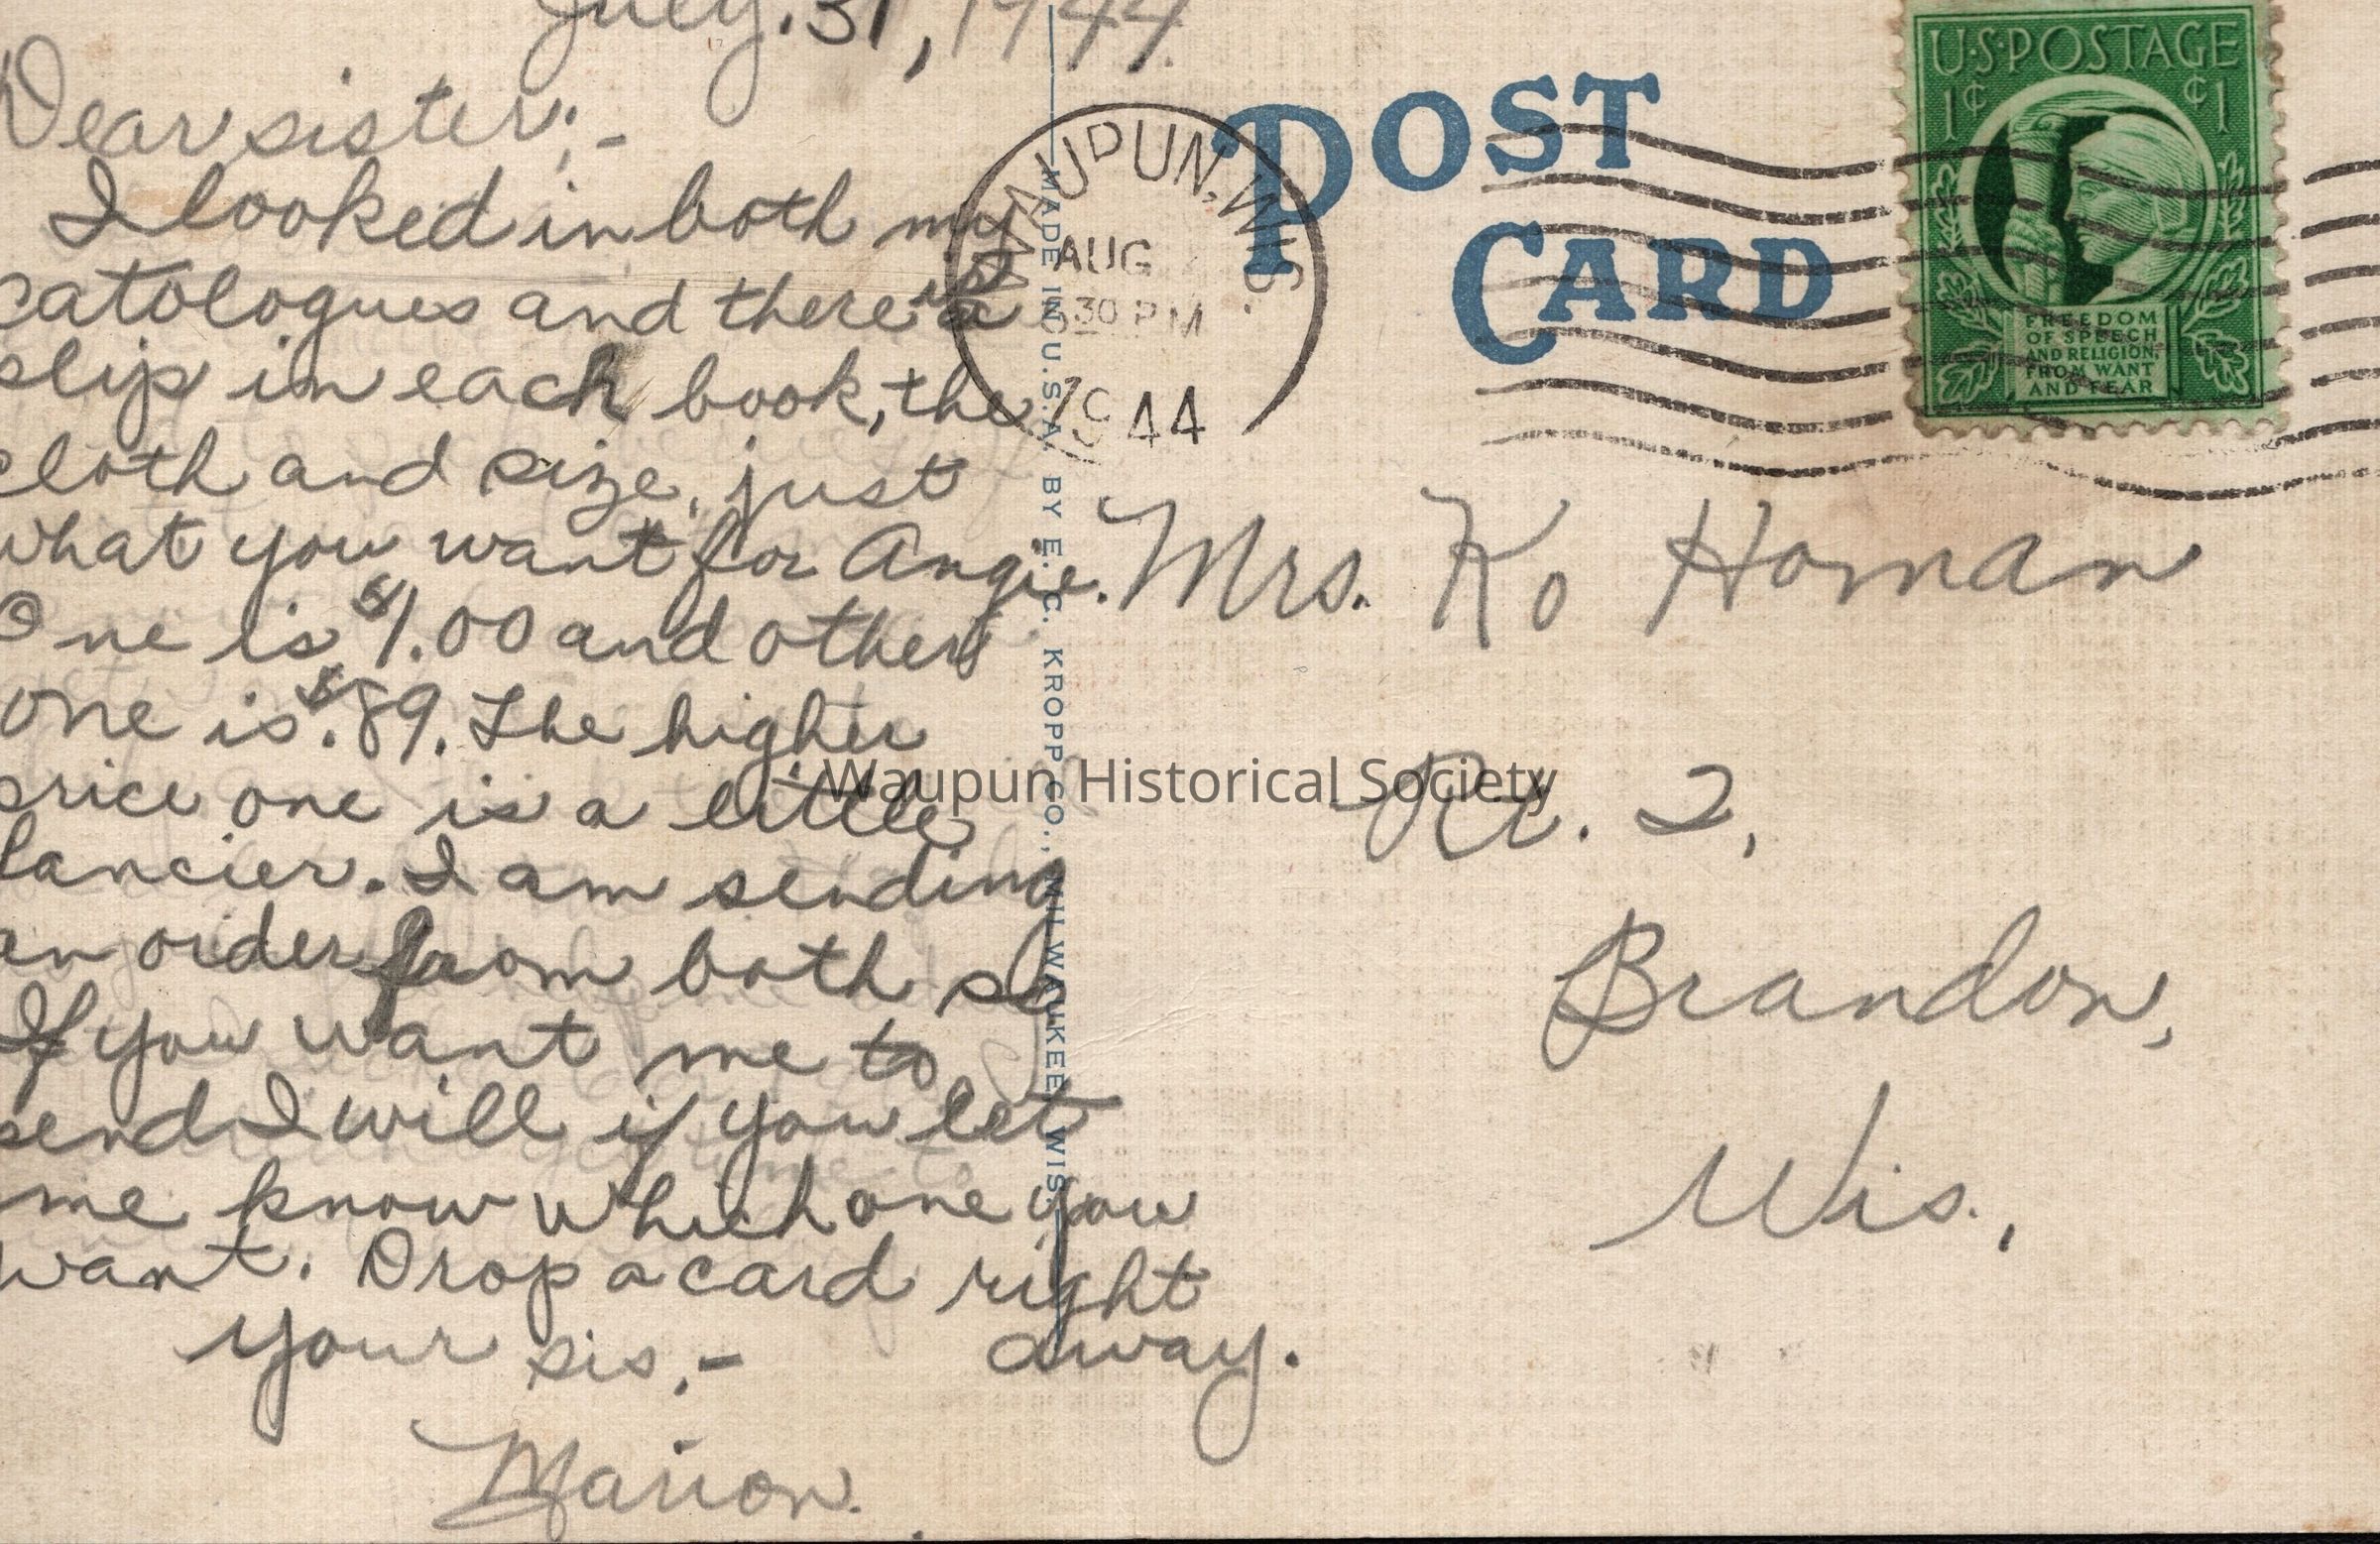 July. 31, 1944.
Dear sister;-
I looked in both my
catologues and there is a
slip in each book, the
cloth and size, just
what you want for Angie.
One is $1.00 and other
one is $.89. The higher
price one is a little
fancier. I am sending
an order from both so
If you want me to
send I will if you let
me know which one you
want. Drop a card right
away.
your sis,-
Marion.
MADE IN U.S.A. BY E. C. KROPP CO., MILWAUKEE, WIS.
POST
CARD
WAUPUN, WIS.
AUG
30 PM
1944
U.S. POSTAGE
1¢ ¢1
FREEDOM
OF SPEECH
AND RELIGION,
FROM WANT
AND FEAR
Mrs. Ko Homan
Rt. 2,
Brandon,
Wis.,
Waupun Historical Society